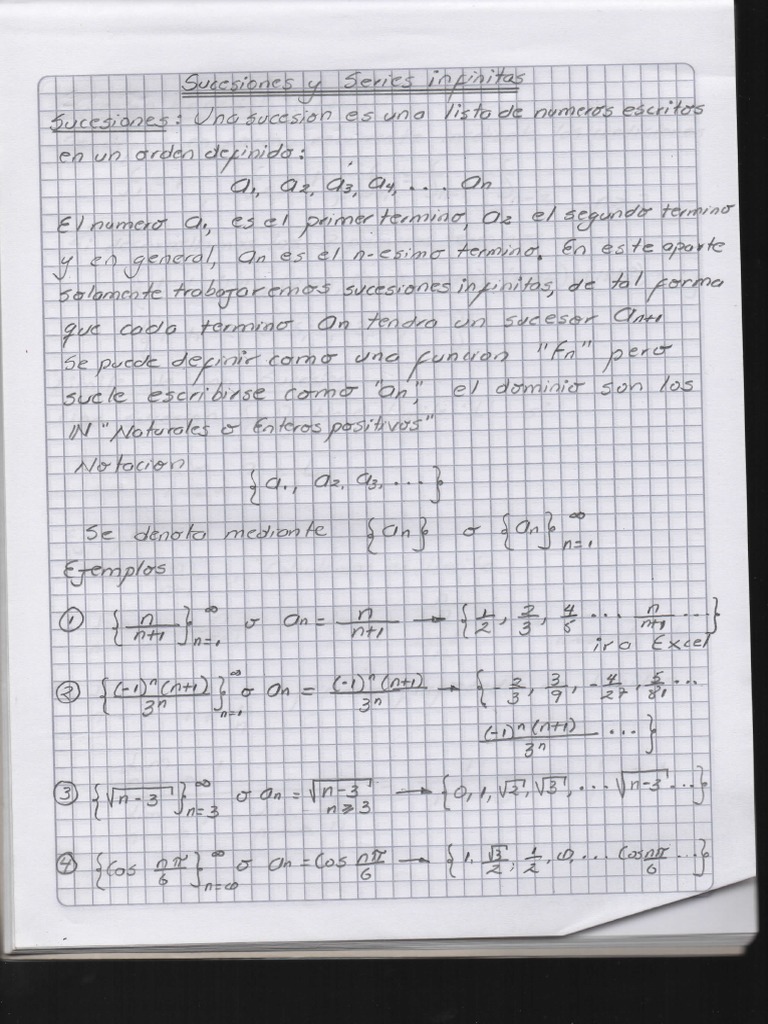 Sucesiones y Series infinitas
Sucesiones: Una sucesion es una lista de numeros escritos
en un orden definido:
a1, a2, a3, a4, ... an
El numero a1, es el primer termino, a2 el segundo termino
y en general, an es el n-esimo termino. En este aparte
solamente trabajaremos sucesiones infinitas, de tal forma
que cada termino an tendra un sucesor an+1
Se puede definir como una funcion "fn" pero
suele escribirse como "an", el dominio son los
IN "Naturales o Enteros positivos"
Notacion
{a1, a2, a3, ...}
Se denota mediante {an} o {an}∞n=1
Ejemplos
① {n/(n+1)}∞n=1 o an = n/(n+1) → {1/2, 2/3, 4/5 ... n/(n+1) ...}
ir a Excel
② {(-1)ⁿ(n+1)/3ⁿ}∞n=1 o an = (-1)ⁿ(n+1)/3ⁿ → {-2/3, 3/9, -4/27, 5/81 ...
(-1)ⁿ(n+1)/3ⁿ ...}
③ {√(n-3)}∞n=3 o an = √(n-3) n≥3 → {0, 1, √2, √3, ... √(n-3) ...}
④ {Cos nπ/6}∞n=0 o an = Cos nπ/6 → {1, √3/2, 1/2, 0, ... Cos nπ/6 ...}